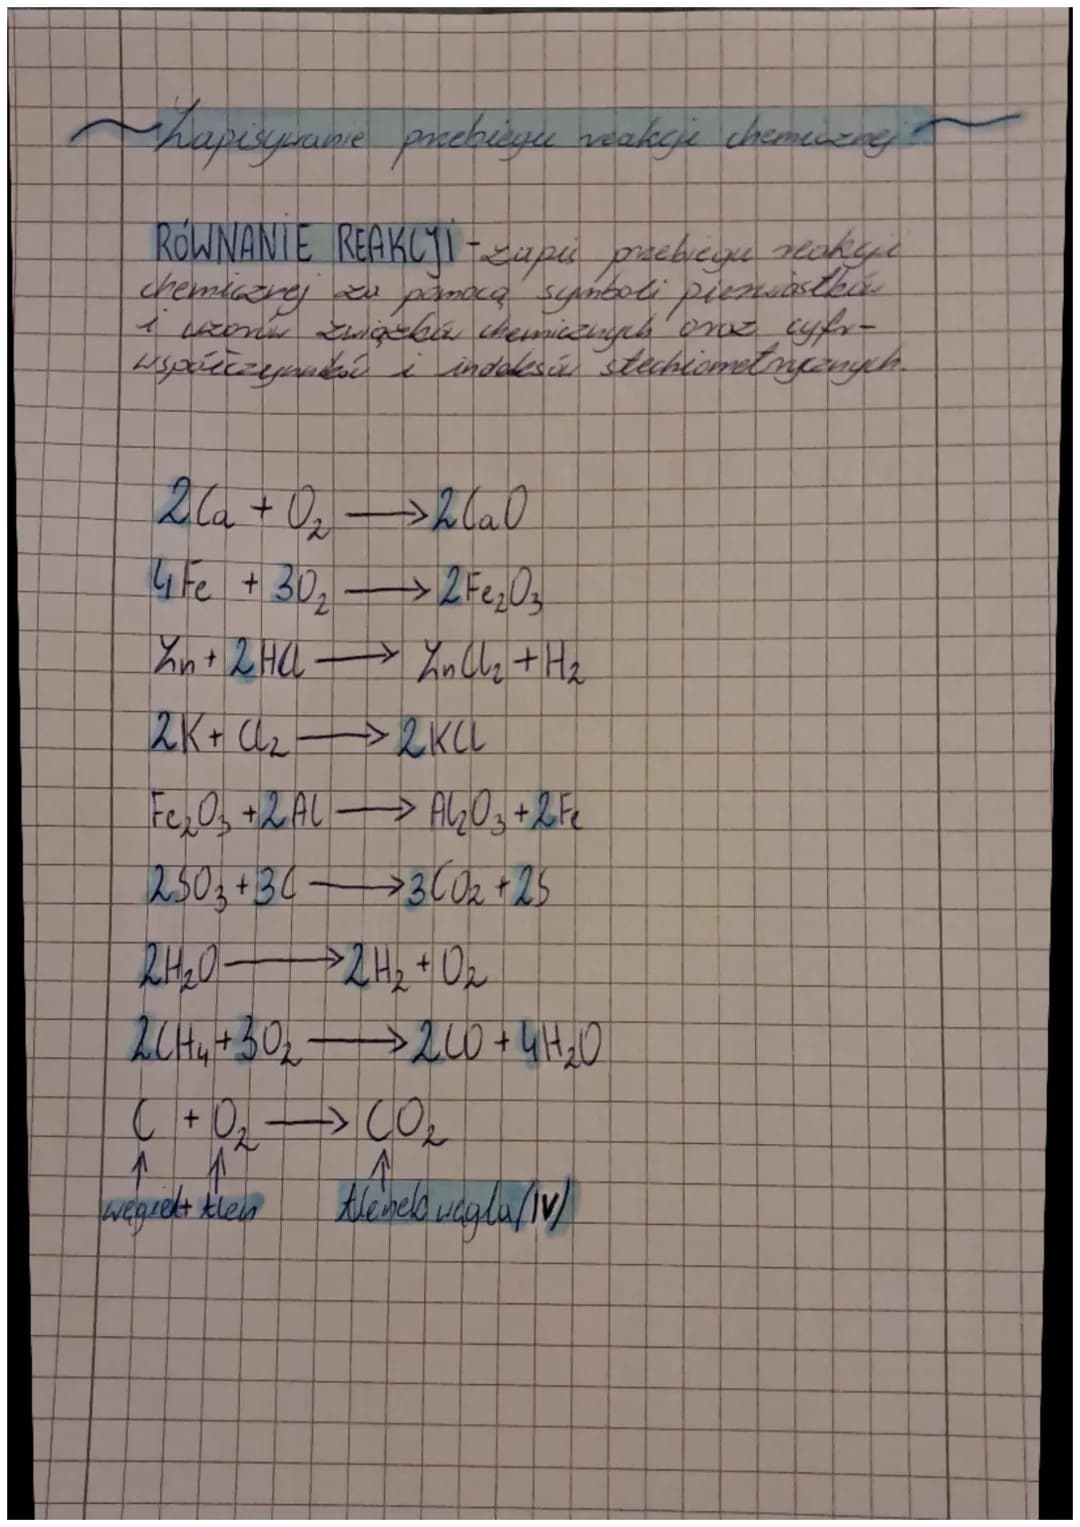 Zapisywanie przebiegu reakcji chemicznej
RÓWNANIE REAKCJI - zapis przebiegu reakcji
chemicznej za pomocą symboli pierwiastków
i wzorów związków chemicznych oraz cyfr-
współczynników i indeksów stechiometrycznych.
2Ca + O₂ → 2CaO
4Fe + 3O₂ → 2Fe₂O₃
Zn + 2HCl → ZnCl₂ + H₂
2K + Cl₂ → 2KCl
Fe₂O₃ + 2Al → Al₂O₃ + 2Fe
2SO₃ + 3C → 3CO₂ + 2S
2H₂O → 2H₂ + O₂
2CH₄ + 3O₂ → 2CO + 4H₂O
C + O₂ → CO₂
↑ ↑ ↑
węgiel + tlen tlenek węgla (IV)